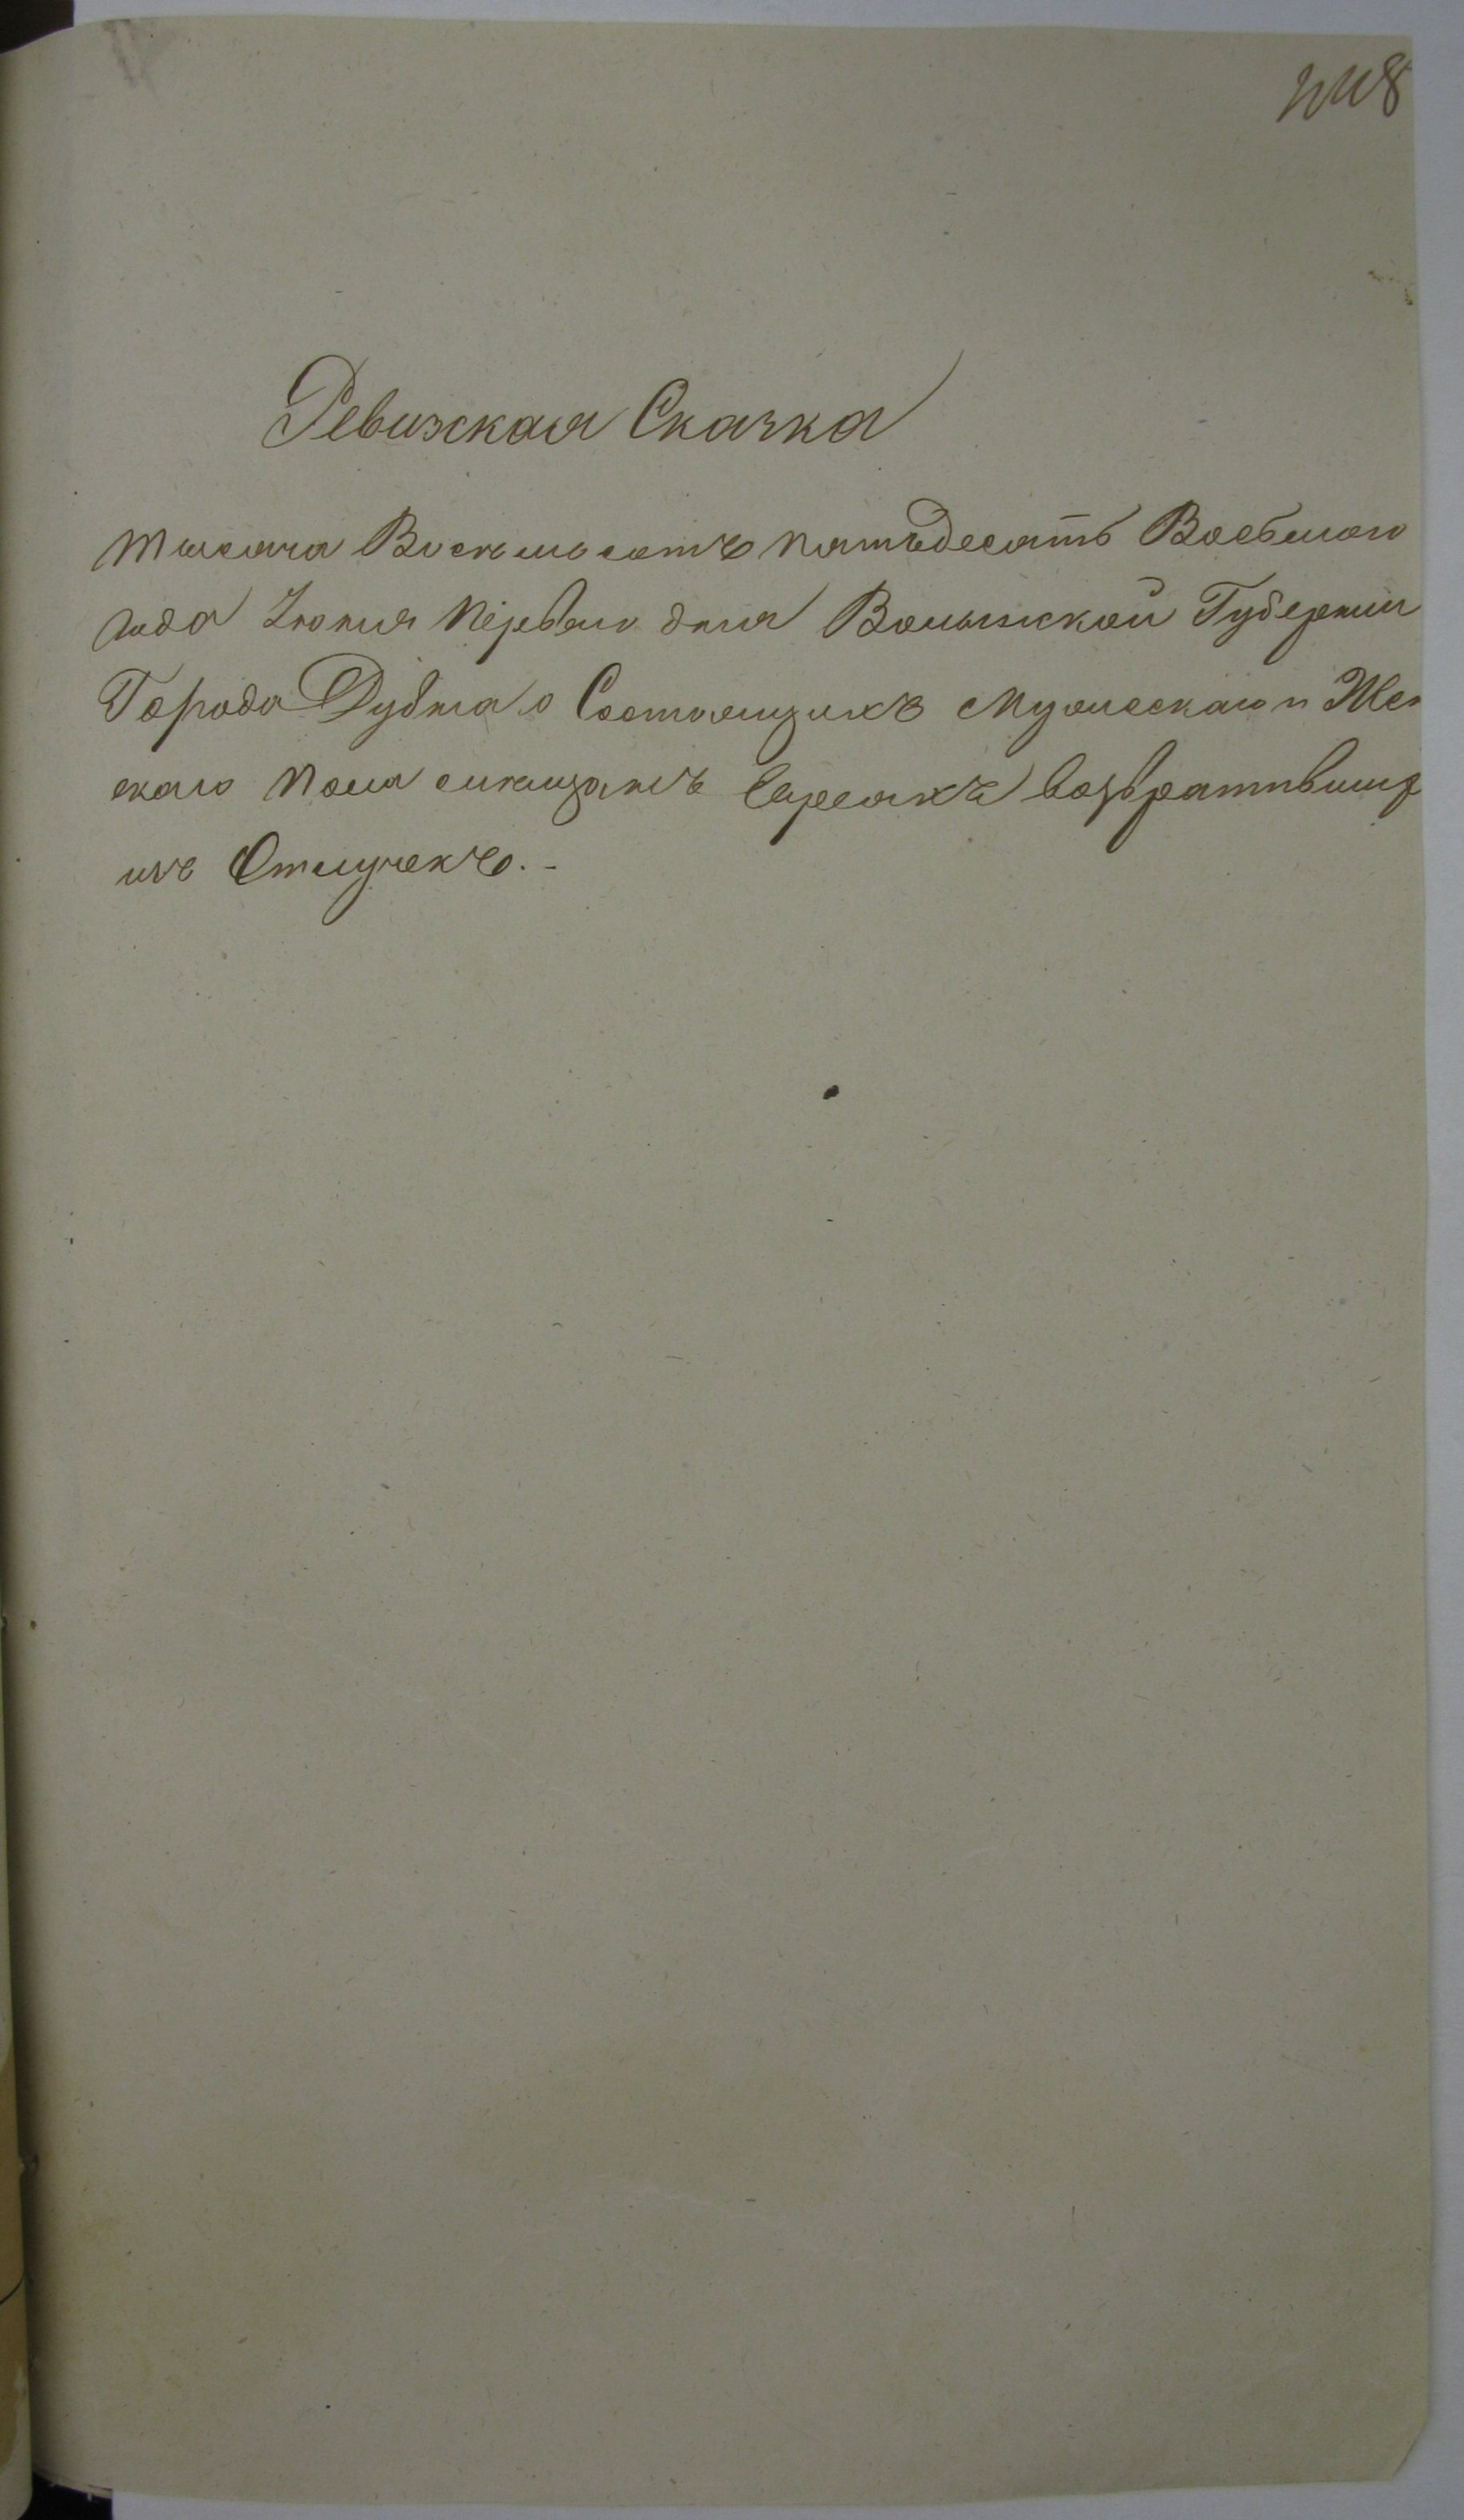 448
Ревизская Сказка
тысяча Восемьсотъ пятьдесятъ Восьмого
года Іюния первого дня Волынской Губернии
Города Дубна о Состоящихъ Мужескаго и Жен
скаго пола мещанъ Евреахъ возвратившихся
изъ Отлучекъ.-